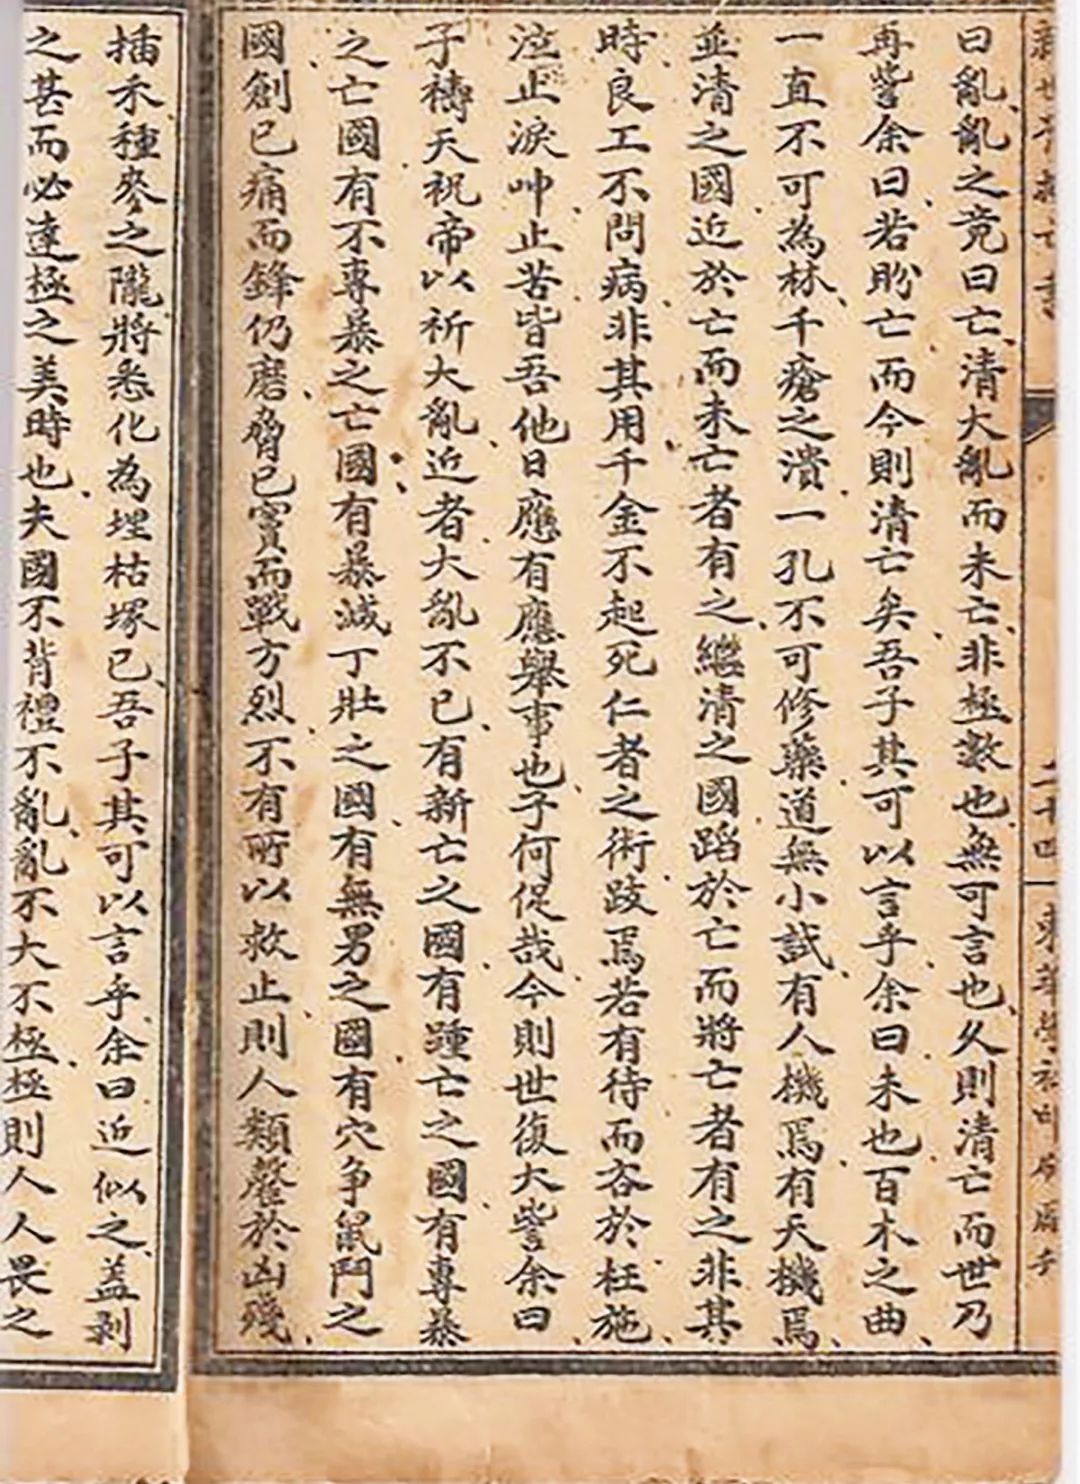 曰亂、亂之竟曰亡、清大亂而未亡、非極數也、無可言也、久則清亡而世乃
再訾余曰、若盼亡而今則清亡矣、吾子其可以言乎、余曰未也、百木之曲、
一直不可為林、千瘡之潰一孔不可修藥、道無小試、有人機焉有天機焉、
並清之國近於亡而未亡者有之、繼清之國蹈於亡而將亡者有之、非其
時、良工不問病、非其用、千金不起死、仁者之術跂焉若有待而吝於枉施、
泣止淚呻止苦皆吾他日應有應舉事也、子何促哉、今則世復大訾余曰、
子禱天祝帝以祈大亂、近者大亂不已、有新亡之國、有踵亡之國、有專暴
之亡國、有不專暴之亡國、有暴滅丁壯之國、有無男之國、有穴爭鼠鬥之
國、創已痛而鋒仍磨、脅已實而戰方烈、不有所以救止、則人類罄於凶殘、
插禾種麥之隴、將悉化為埋枯塚已、吾子其可以言乎、余曰近似之、蓋剝
之甚而必達極之美時也、夫國不背禮不亂、亂不大不極、極則人人畏之
東華學社印